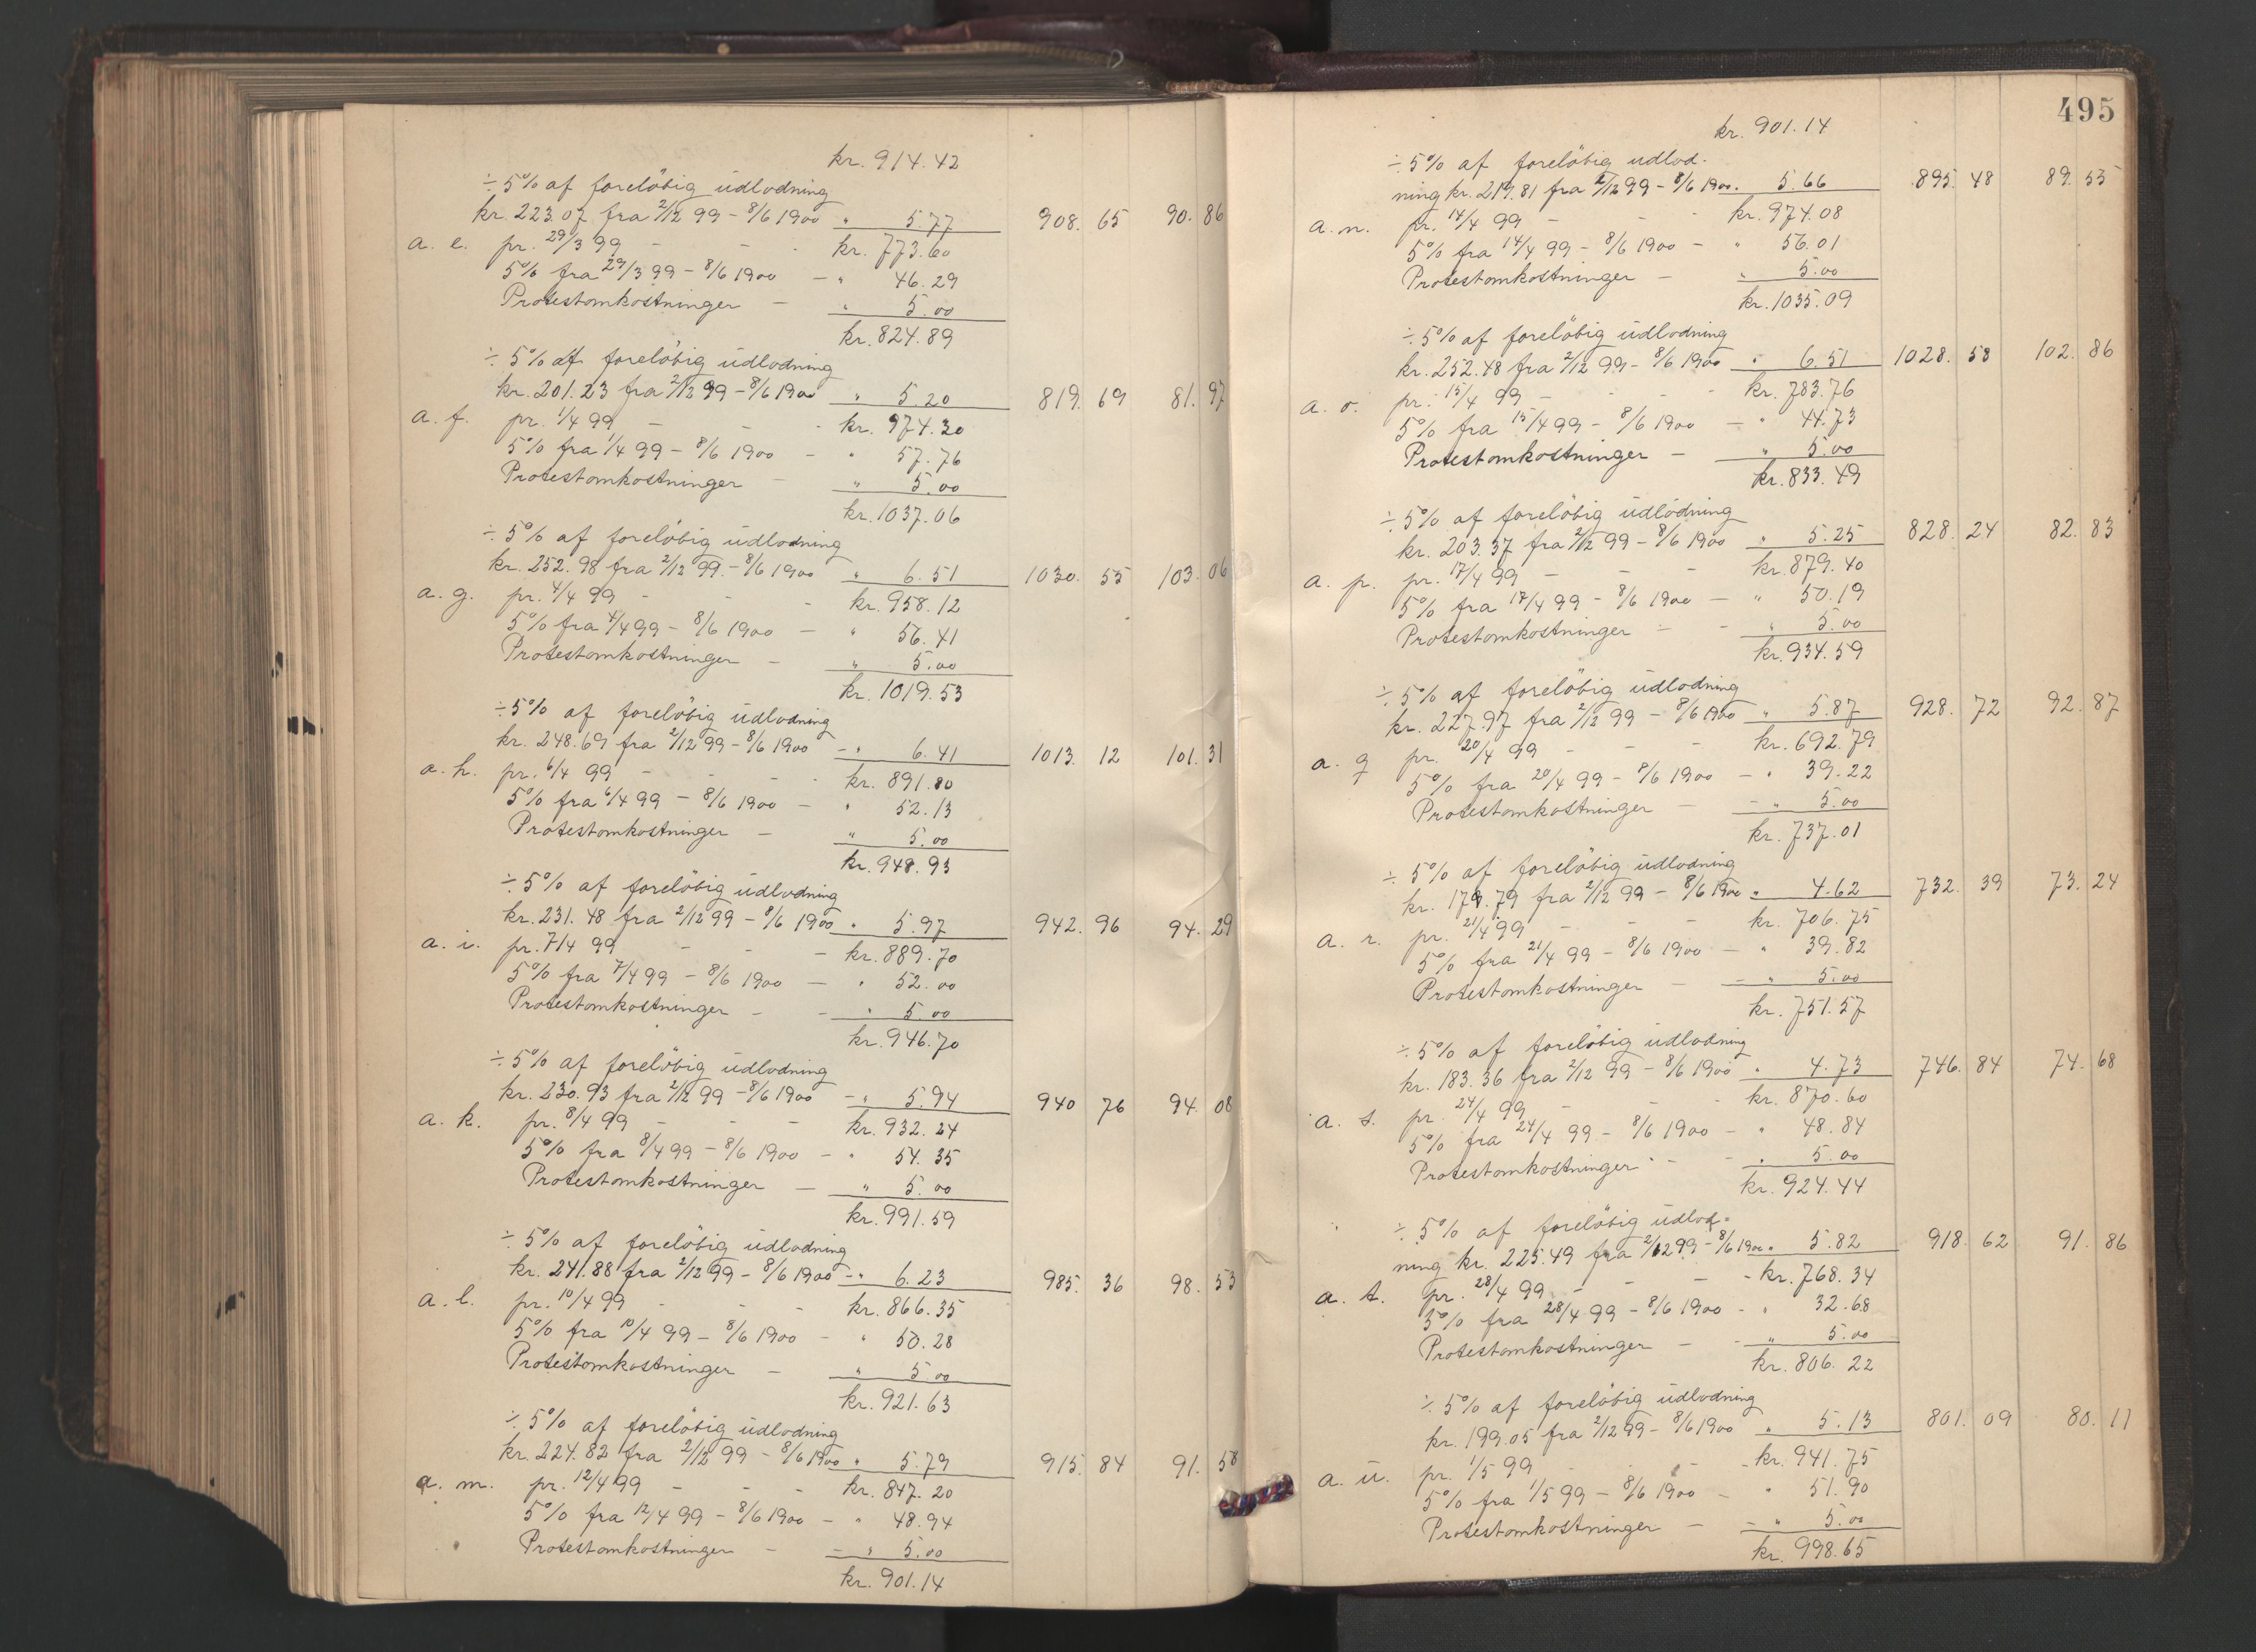 kr. 914.42
÷ 5% af foreløbig udlodning
kr. 223.07 fra 2/12 99 - 8/6 1900 " 5.77 908. 65 90. 86
a. e. pr. 29/3 99 - - - kr. 773.60
5% fra 29/3 99 - 8/6 1900 - " 46.29
Protestomkostninger - " 5.00
kr. 824.89
÷ 5% af foreløbig udlodning
kr. 201.23 fra 2/12 99 - 8/6 1900 " 5.20 819. 69 81. 97
a. f. pr. 1/4 99 - - - kr. 974.30
5% fra 1/4 99 - 8/6 1900 - " 57.76
Protestomkostninger - " 5.00
kr. 1037.06
÷ 5% af foreløbig udlodning
kr. 252.98 fra 2/12 99 - 8/6 1900 " 6.51 1030. 55 103. 06
a. g. pr. 4/4 99 - - - kr. 958.12
5% fra 4/4 99 - 8/6 1900 - " 56.41
Protestomkostninger - " 5.00
kr. 1019.53
÷ 5% af foreløbig udlodning
kr. 248.69 fra 2/12 99 - 8/6 1900 - " 6.41 1013. 12 101. 31
a. h. pr. 6/4 99 - - - kr. 891.80
5% fra 6/4 99 - 8/6 1900 - " 52.13
Protestomkostninger - " 5.00
kr. 948.93
÷ 5% af foreløbig udlodning
kr. 231.48 fra 2/12 99 - 8/6 1900 " 5.97 942. 96 94. 29
a. i. pr. 7/4 99 - - - kr. 889.70
5% fra 7/4 99 - 8/6 1900 - " 52.00
Protestomkostninger - - " 5.00
kr. 946.70
÷ 5% af foreløbig udlodning
kr. 230.93 fra 2/12 99 - 8/6 1900 - " 5.94 940 76 94. 08
a. k. pr. 8/4 99 - - - kr. 932.24
5% fra 8/4 99 - 8/6 1900 - " 54.35
Protestomkostninger - " 5.00
kr. 991.59
÷ 5% af foreløbig udlodning
kr. 241.88 fra 2/12 99 - 8/6 1900 - " 6.23 985. 36 98. 53
a. l. pr. 10/4 99 - - - kr. 866.35
5% fra 10/4 99 - 8/6 1900 - " 50.28
Protestomkostninger - " 5.00
kr. 921.63
÷ 5% af foreløbig udlodning
kr. 224.82 fra 2/12 99 - 8/6 1900 " 5.79 915. 84 91. 58
a. m. pr. 12/4 99 - - - kr. 847.20
5% fra 12/4 99 - 8/6 1900 - " 48.94
Protestomkostninger - - " 5.00
kr. 901.14
495
kr. 901.14
÷ 5% af foreløbig udlod-
ning kr. 219.81 fra 2/12 99 - 8/6 1900. 5.66 895. 48 89. 55
a. n. pr. 14/4 99 - - - kr. 974.08
5% fra 14/4 99 - 8/6 1900 - " 56.01
Protestomkostninger - " 5.00
kr. 1035.09
÷ 5% af foreløbig udlodning
kr. 252.48 fra 2/12 99 - 8/6 1900 " 6.51 1028. 58 102. 86
a. o. pr. 15/4 99 - - - kr. 783.76
5% fra 15/4 99 - 8/6 1900 - " 44.73
Protestomkostninger - " 5.00
kr. 833.49
÷ 5% af foreløbig udlodning
kr. 203.37 fra 2/12 99 - 8/6 1900 " 5.25 828. 24 82. 83
a. p. pr. 17/4 99 - - - kr. 879.40
5% fra 17/4 99 - 8/6 1900 - " 50.19
Protestomkostninger - - " 5.00
kr. 934.59
÷ 5% af foreløbig udlodning
kr. 227.97 fra 2/12 99 - 8/6 1900 " 5.87 928. 72 92. 87
a. q pr. 20/4 99 - - - kr. 692.79
5% fra 20/4 99 - 8/6 1900 - " 39.22
Protestomkostninger - - " 5.00
kr. 737.01
÷ 5% af foreløbig udlodning
kr. 179.79 fra 2/12 99 - 8/6 1900 " 4.62 732. 39 73. 24
a. r. pr. 21/4 99 - - - kr. 706.75
5% fra 21/4 99 - 8/6 1900 - " 39.82
Protestomkostninger - - " 5.00
kr. 751.57
÷ 5% af foreløbig udlodning
kr. 183.36 fra 2/12 99 - 8/6 1900 " 4.73 746. 84 74. 68
a. s. pr. 24/4 99 - - - kr. 870.60
5% fra 24/4 99 - 8/6 1900 - " 48.84
Protestomkostninger - - " 5.00
kr. 924.44
÷ 5% af foreløbig udlod-
ning kr. 225.49 fra 2/12 99 - 8/6 1900 " 5.82 918. 62 91. 86
a. t. pr. 28/4 99 - - - kr. 768.34
5% fra 28/4 99 - 8/6 1900 - " 32.68
Protestomkostninger - - " 5.00
kr. 806.22
÷ 5% af foreløbig udlodning
kr. 199.05 fra 2/12 99 - 8/6 1900 " 5.13 801. 09 80. 11
a. u. pr. 1/5 99 - - - kr. 941.75
5% fra 1/5 99 - 8/6 1900 - " 51.90
Protestomkostninger - - " 5.00
kr. 998.65